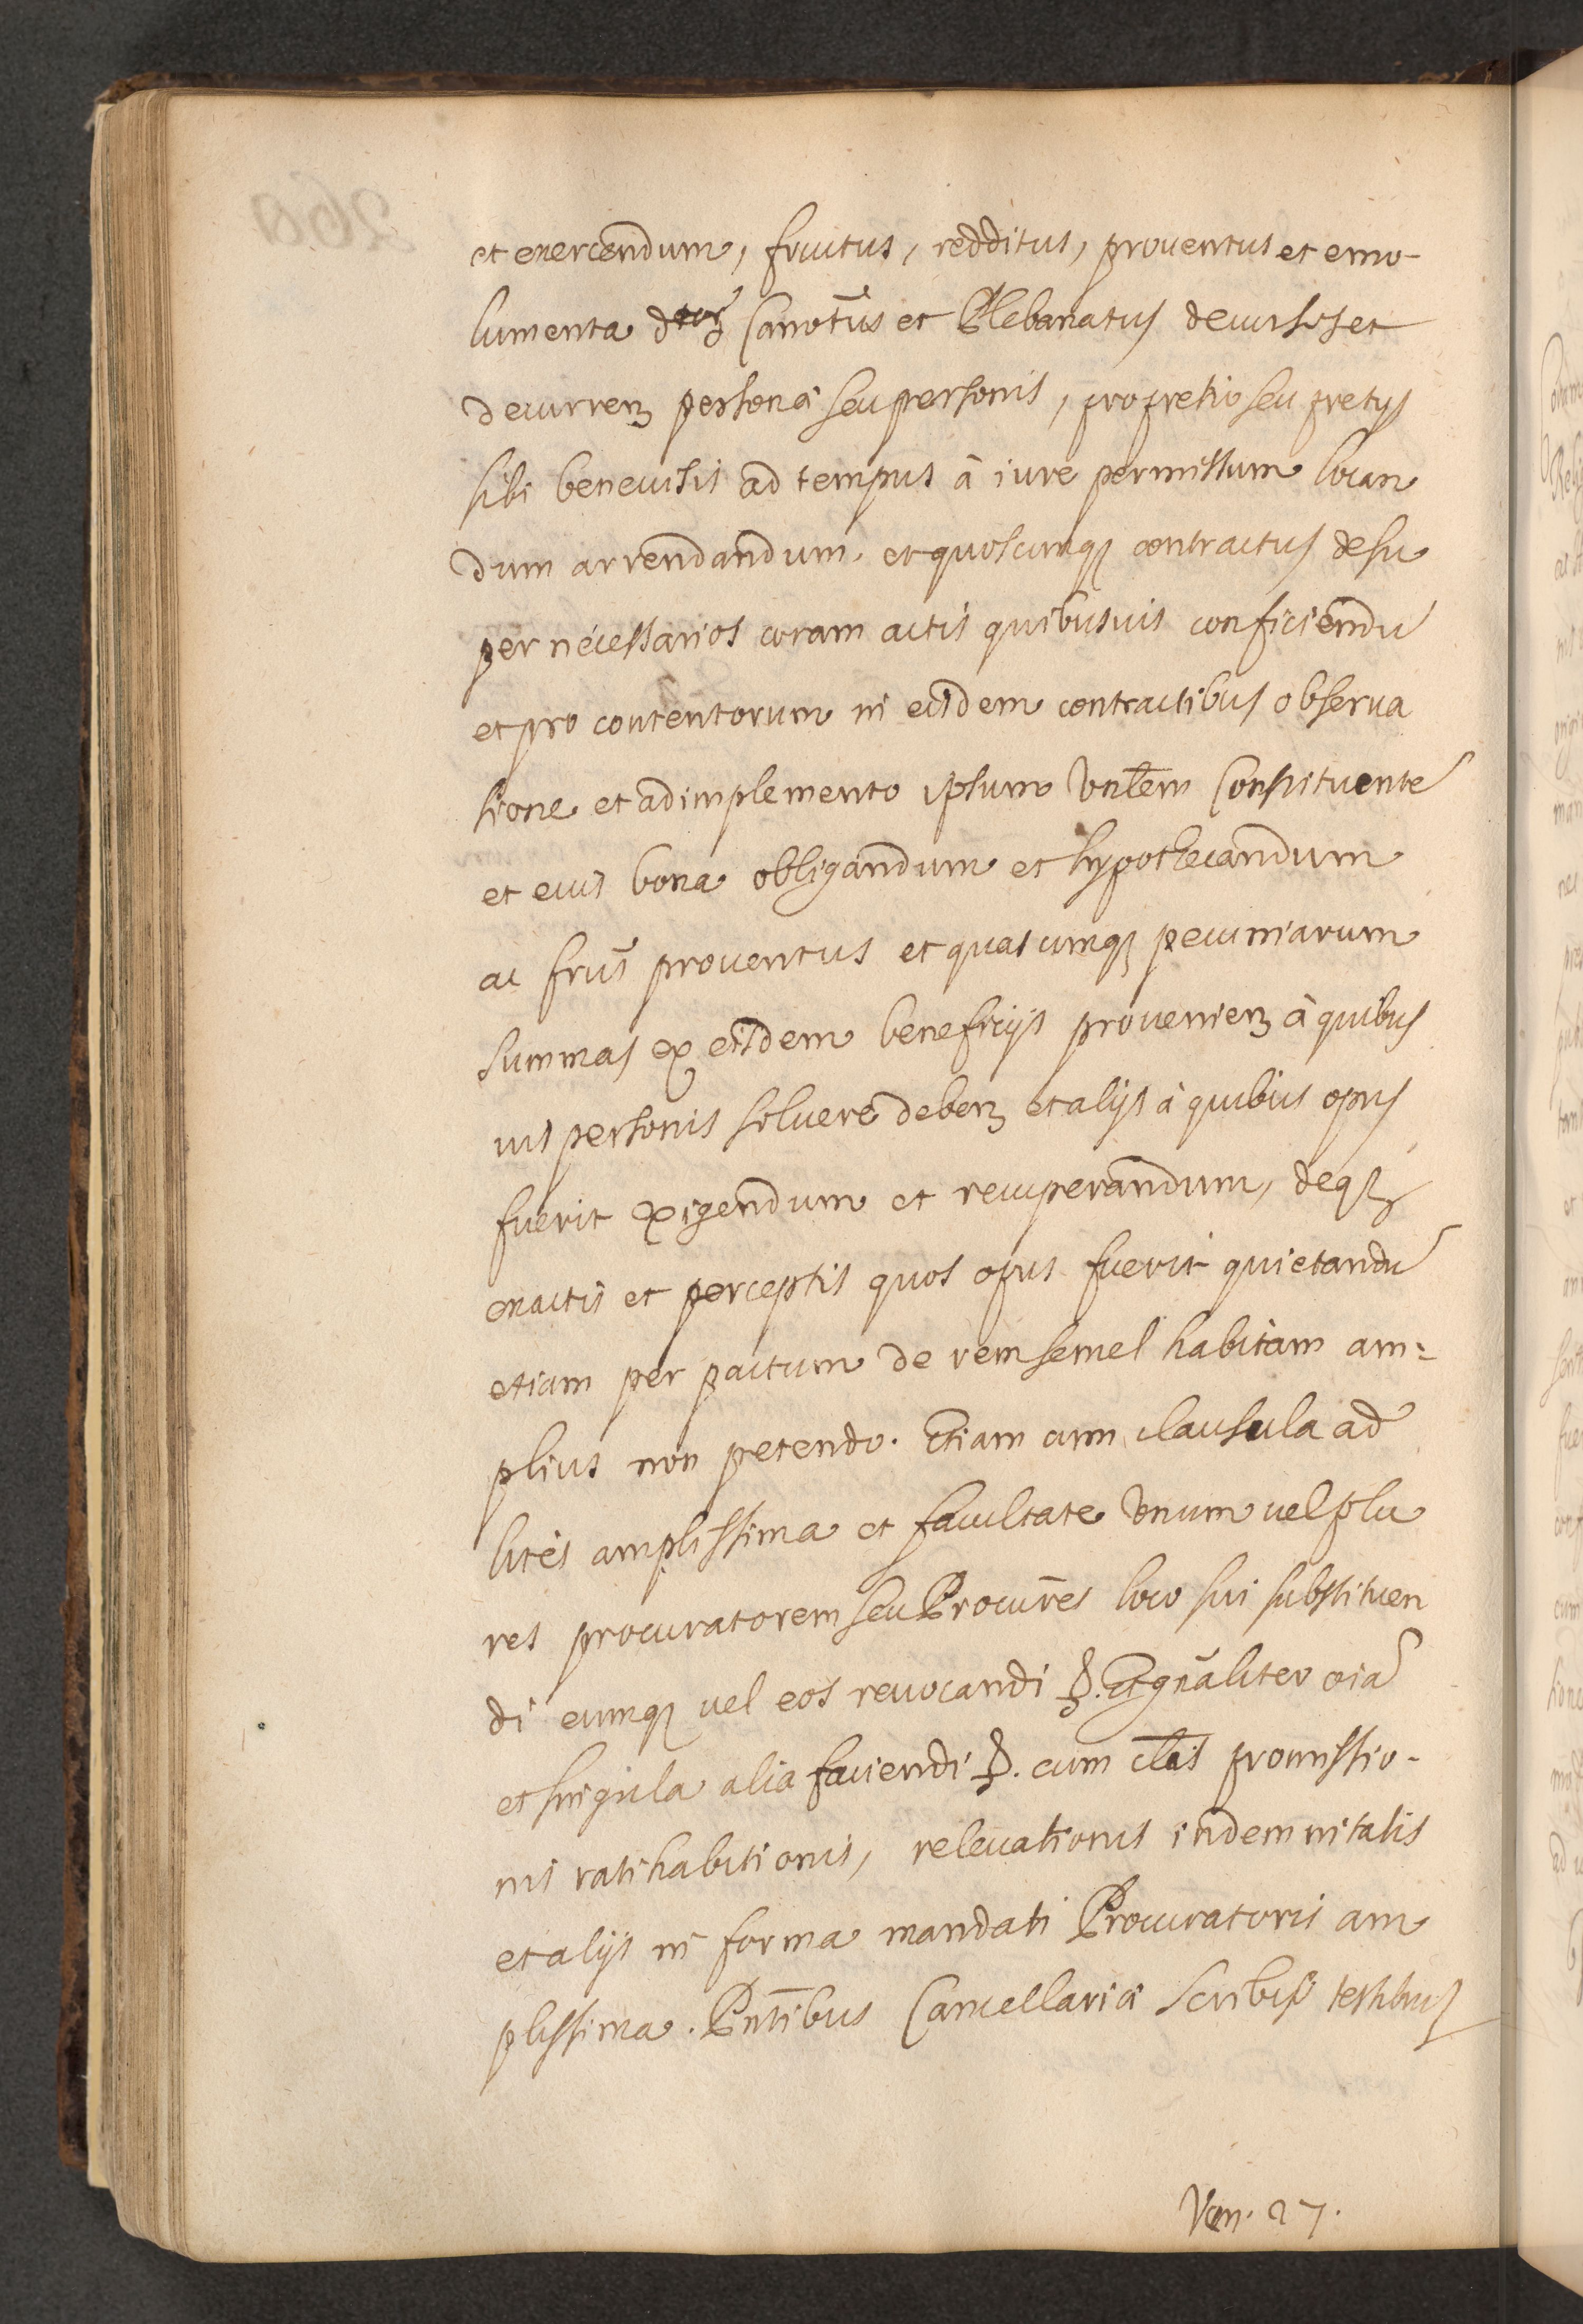 et exercendum, fructus, redditus, prouentus et emo-
lumenta dtorz Canotus et Plebanatus decursos et
decurrenz personæ seu personis, pro pretio seu pretys
sibi beneuisis ad tempus à iure permissum locan
dum arrendandum. et quoscumqz contractus desu
per necessarios coram actis quibusuis conficiendũ
et pro contentorum in eisdem contractibus obserua
tione et adimplemento ipsum Vnltem Constituentẽ
et eius bona obligandum et hypothecandum
ac frus̃ prouentus et quascumqz pecuniarum
summas ex eisdem beneficijs prouenienz à quibus
uis personis soluere debenz et alijs à quibus opus
fuerit exigendum et recuperandum, deqz
exactis et perceptis quos opus fuerit quietandũ
etiam per pactum de rem semel habitam am=
plius non petendo. Etiam cum clausula ad
lites amplissima et facultate Vnum uel plu
res procuratorem seu Procur̃es loco sui substituen
di eumqz uel eos reuocandi &. Et gñaliter oĩa
et singula alia faciendi &. cum cl̃is promissio-
nis ratihabitionis, releuationis indemnitatis
et alijs in forma mandati Procuratoris am
plissima. Pñtibus Cancellariæ Scribis testibus
Ven. 27.
260